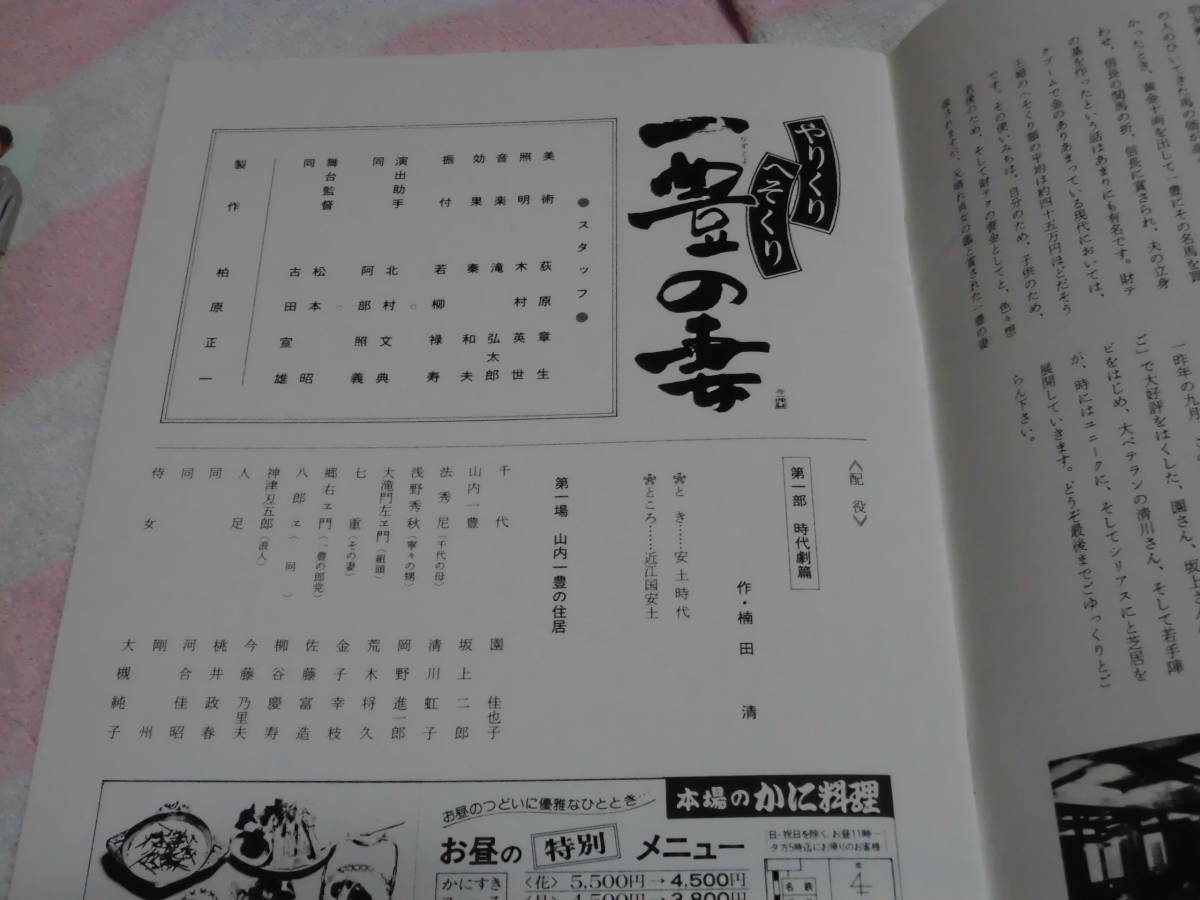 の人のひいてきた馬の価が高
かったとき、黄金十両を出して一豊にその名馬を買
わせ、信長の閲馬の折、信長に賞され、夫の立身
の基を作ったという話はあまりにも有名です。財テ
クブームで金のありあまっている現代においては、
主婦のへそくり額の平均は約四十五万円ほどだそう
です。その使いみちは、自分のため、子供のため、
老後のため、そして財テクの資金としてと、色々想
像されますが、夫婦お貞女の鑑と賞された一豊の妻
一昨年の九月、
ご」で大好評をはくした、園さん、坂上さん
ビをはじめ、大ベテランの清川さん、そして若手陣
が、時にはユニークに、そしてシリアスにと芝居を
展開していきます。どうぞ最後までごゆっくりとご
らん下さい。
やりくり
へそくり
一豊の妻
かずとよ
●スタッフ●
美術 荻原章生
照明 木村英世
音楽 滝弘太郎
効果 秦和夫
振付 若柳禄寿
演出助手 北村文典
同 阿部照義
舞台監督 松本昭
同 古田宣雄
製作 柏原正一
《配役》
第一部 時代劇篇
作・楠田 清
とき……安土時代
ところ……近江国安土
第一場 山内一豊の住居
千代 園佳也子
山内一豊 坂上二郎
法秀尼(千代の母) 清川虹子
浅野秋秀(寧々の甥) 岡野進一郎
大滝門左ヱ門(組頭) 荒木将久
七重(その妻) 金子幸枝
郷右ヱ門(一豊の郎党) 佐藤富造
八郎ヱ(同) 柳谷慶寿
神津刄五郎(浪人) 今藤乃里夫
人足 桃井政春
同 河合佳昭
同 剛州
侍女 大槻純子
お昼のつどいに優雅なひととき…
本場のかに料理
お昼の 特別 メニュー
日・祝日を除く、お昼11時〜
夕方5時迄にお帰りのお客様
かにすき
〈花〉5,500円→4,500円
〈月〉4,500円→3,800円
名鉄